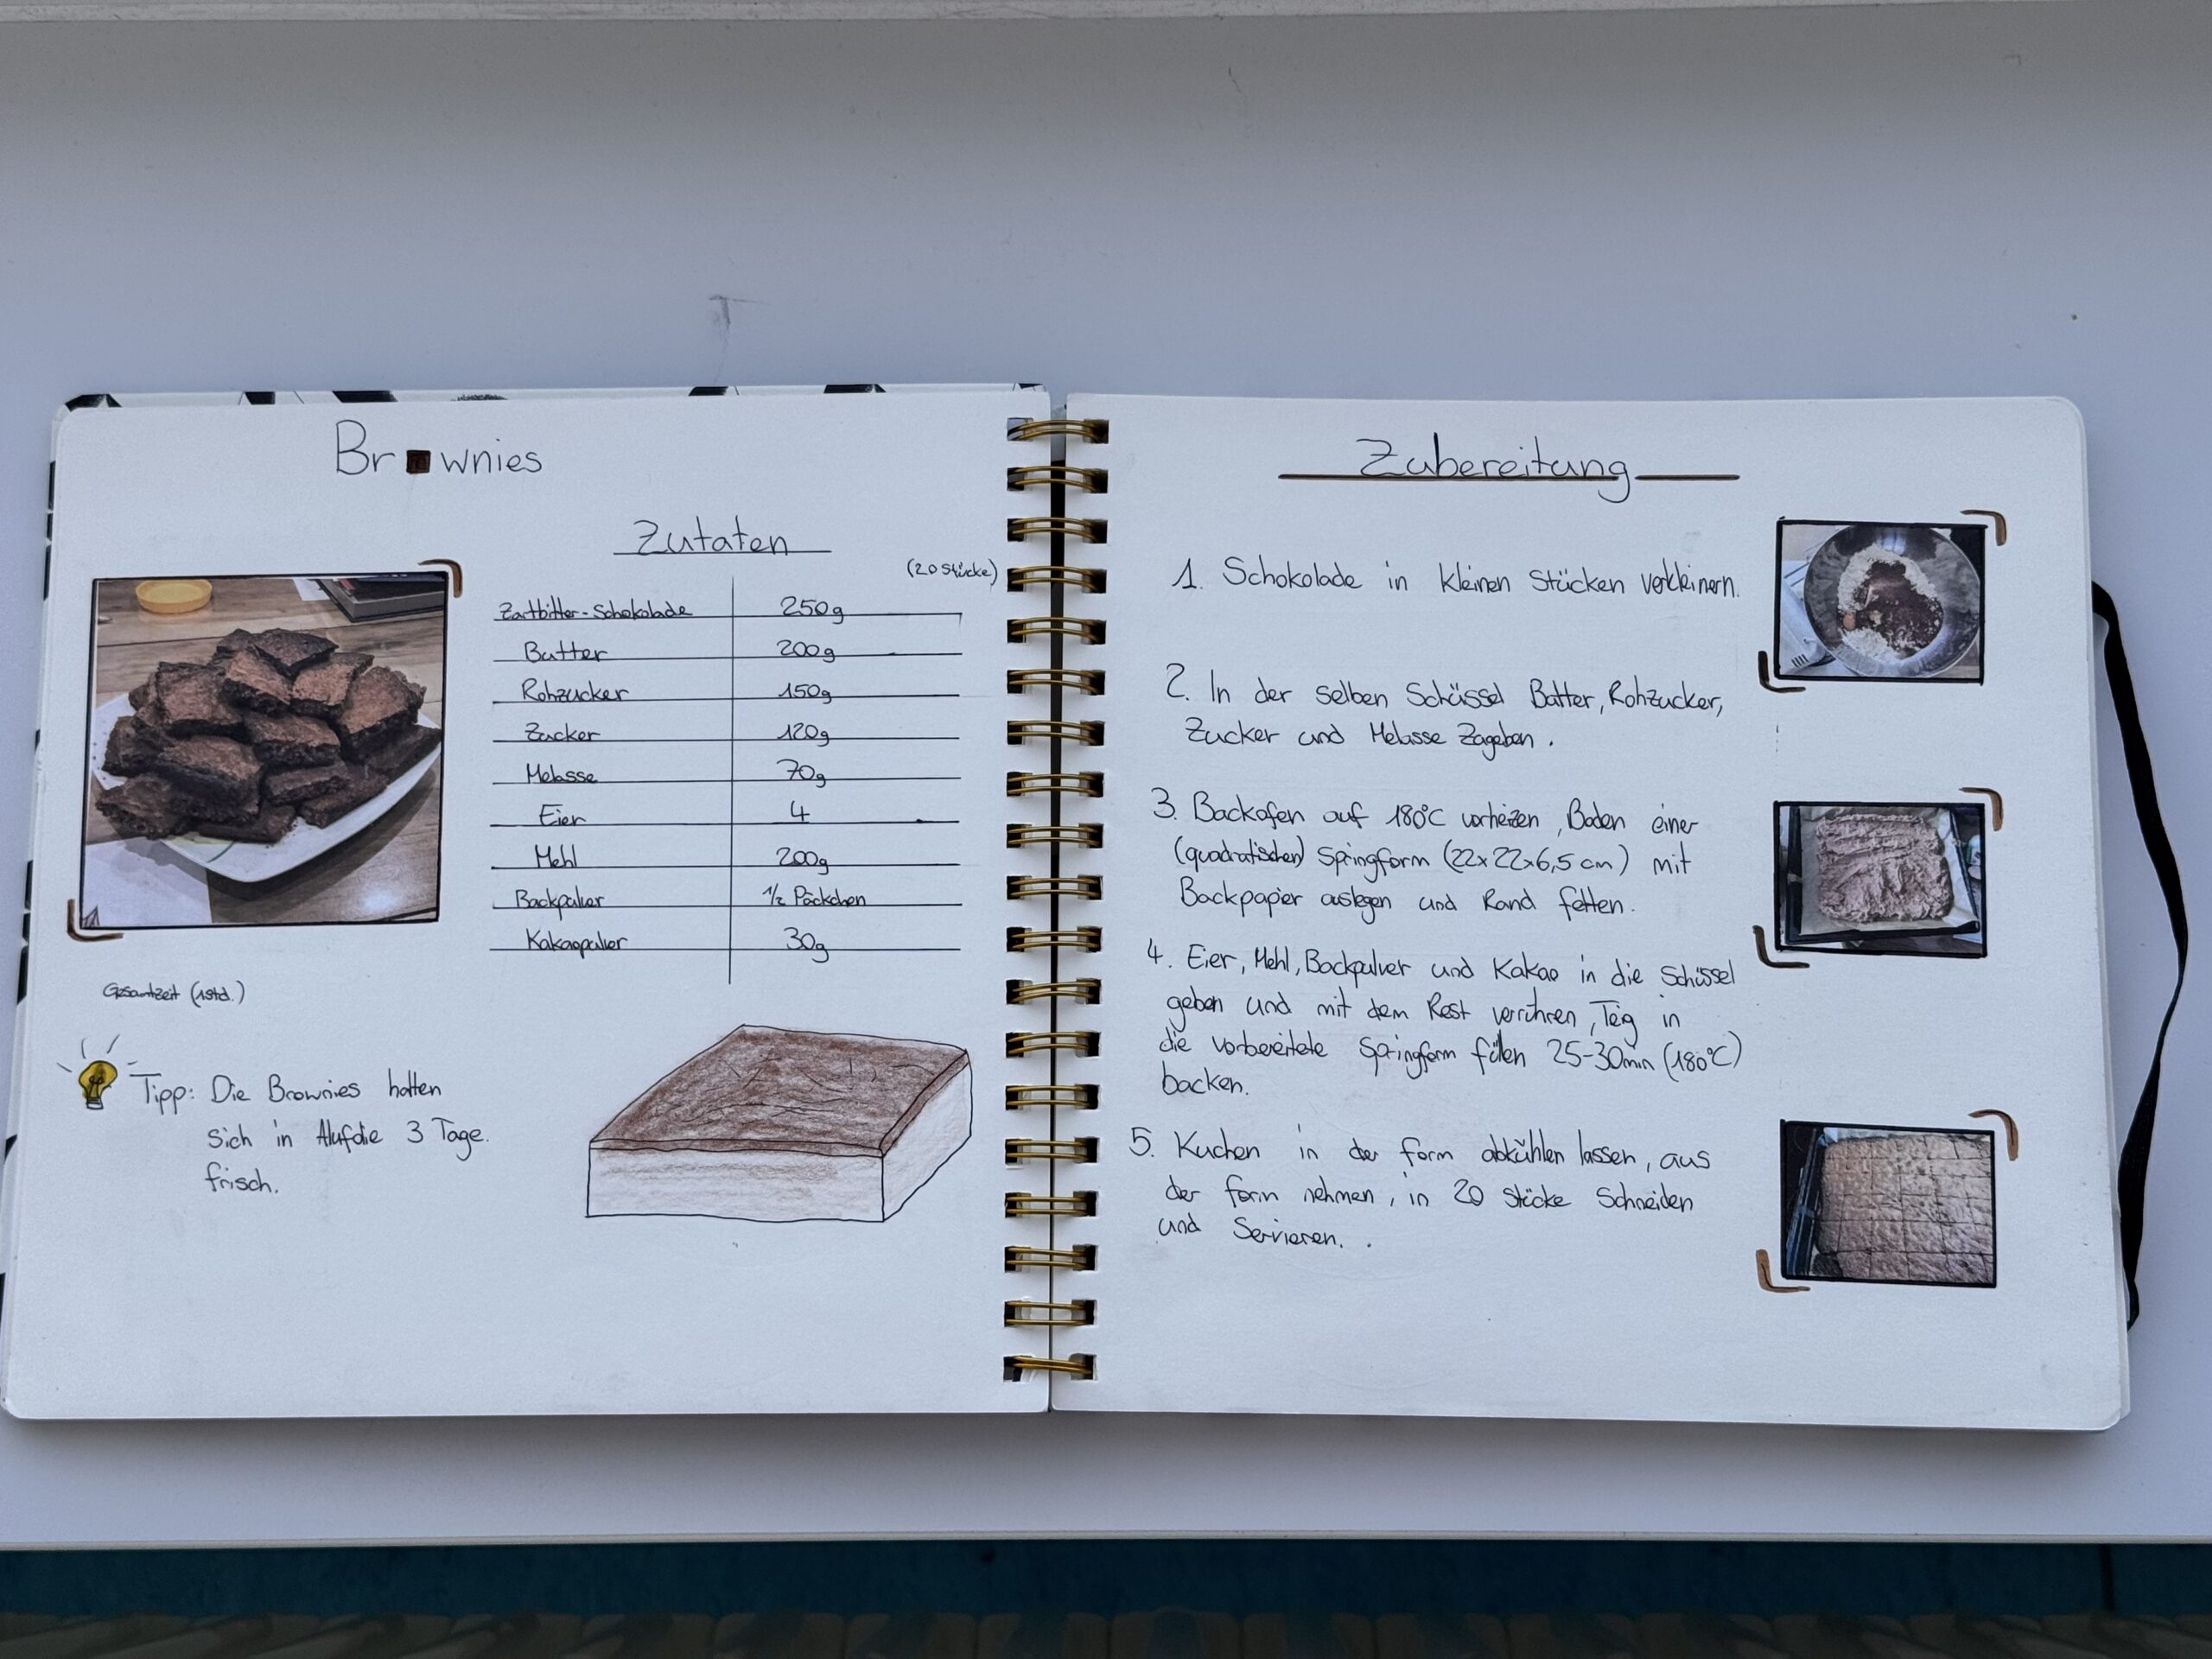 Brownies
Zutaten
(20 Stücke)
Zartbitter-Schokolade 250g
Butter 200g
Rohzucker 150g
Zucker 120g
Melasse 70g
Eier 4
Mehl 200g
Backpulver 1/2 Päckchen
Kakaopulver 30g
Gesamtzeit (1std.)
Tipp: Die Brownies halten
sich in Alufolie 3 Tage.
frisch.
Zubereitung
1. Schokolade in kleinen Stücken verkleinern.
2. In der selben Schüssel Butter, Rohzucker,
Zucker und Melasse Zugeben.
3. Backofen auf 180°C vorheizen, Boden einer
(quadratischen) Springform (22x22x6,5 cm) mit
Backpapier auslegen und Rand fetten.
4. Eier, Mehl, Backpulver und Kakao in die Schüssel
geben und mit dem Rest verrühren, Teig in
die vorbereitete Springform füllen 25-30min (180°C)
backen.
5. Kuchen in der Form abkühlen lassen, aus
der Form nehmen, in 20 Stücke Schneiden
und Servieren. .